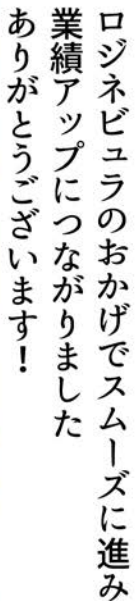 ロジネビュラのおかげでスムーズに進み
業績アップにつながりました
ありがとうございます！